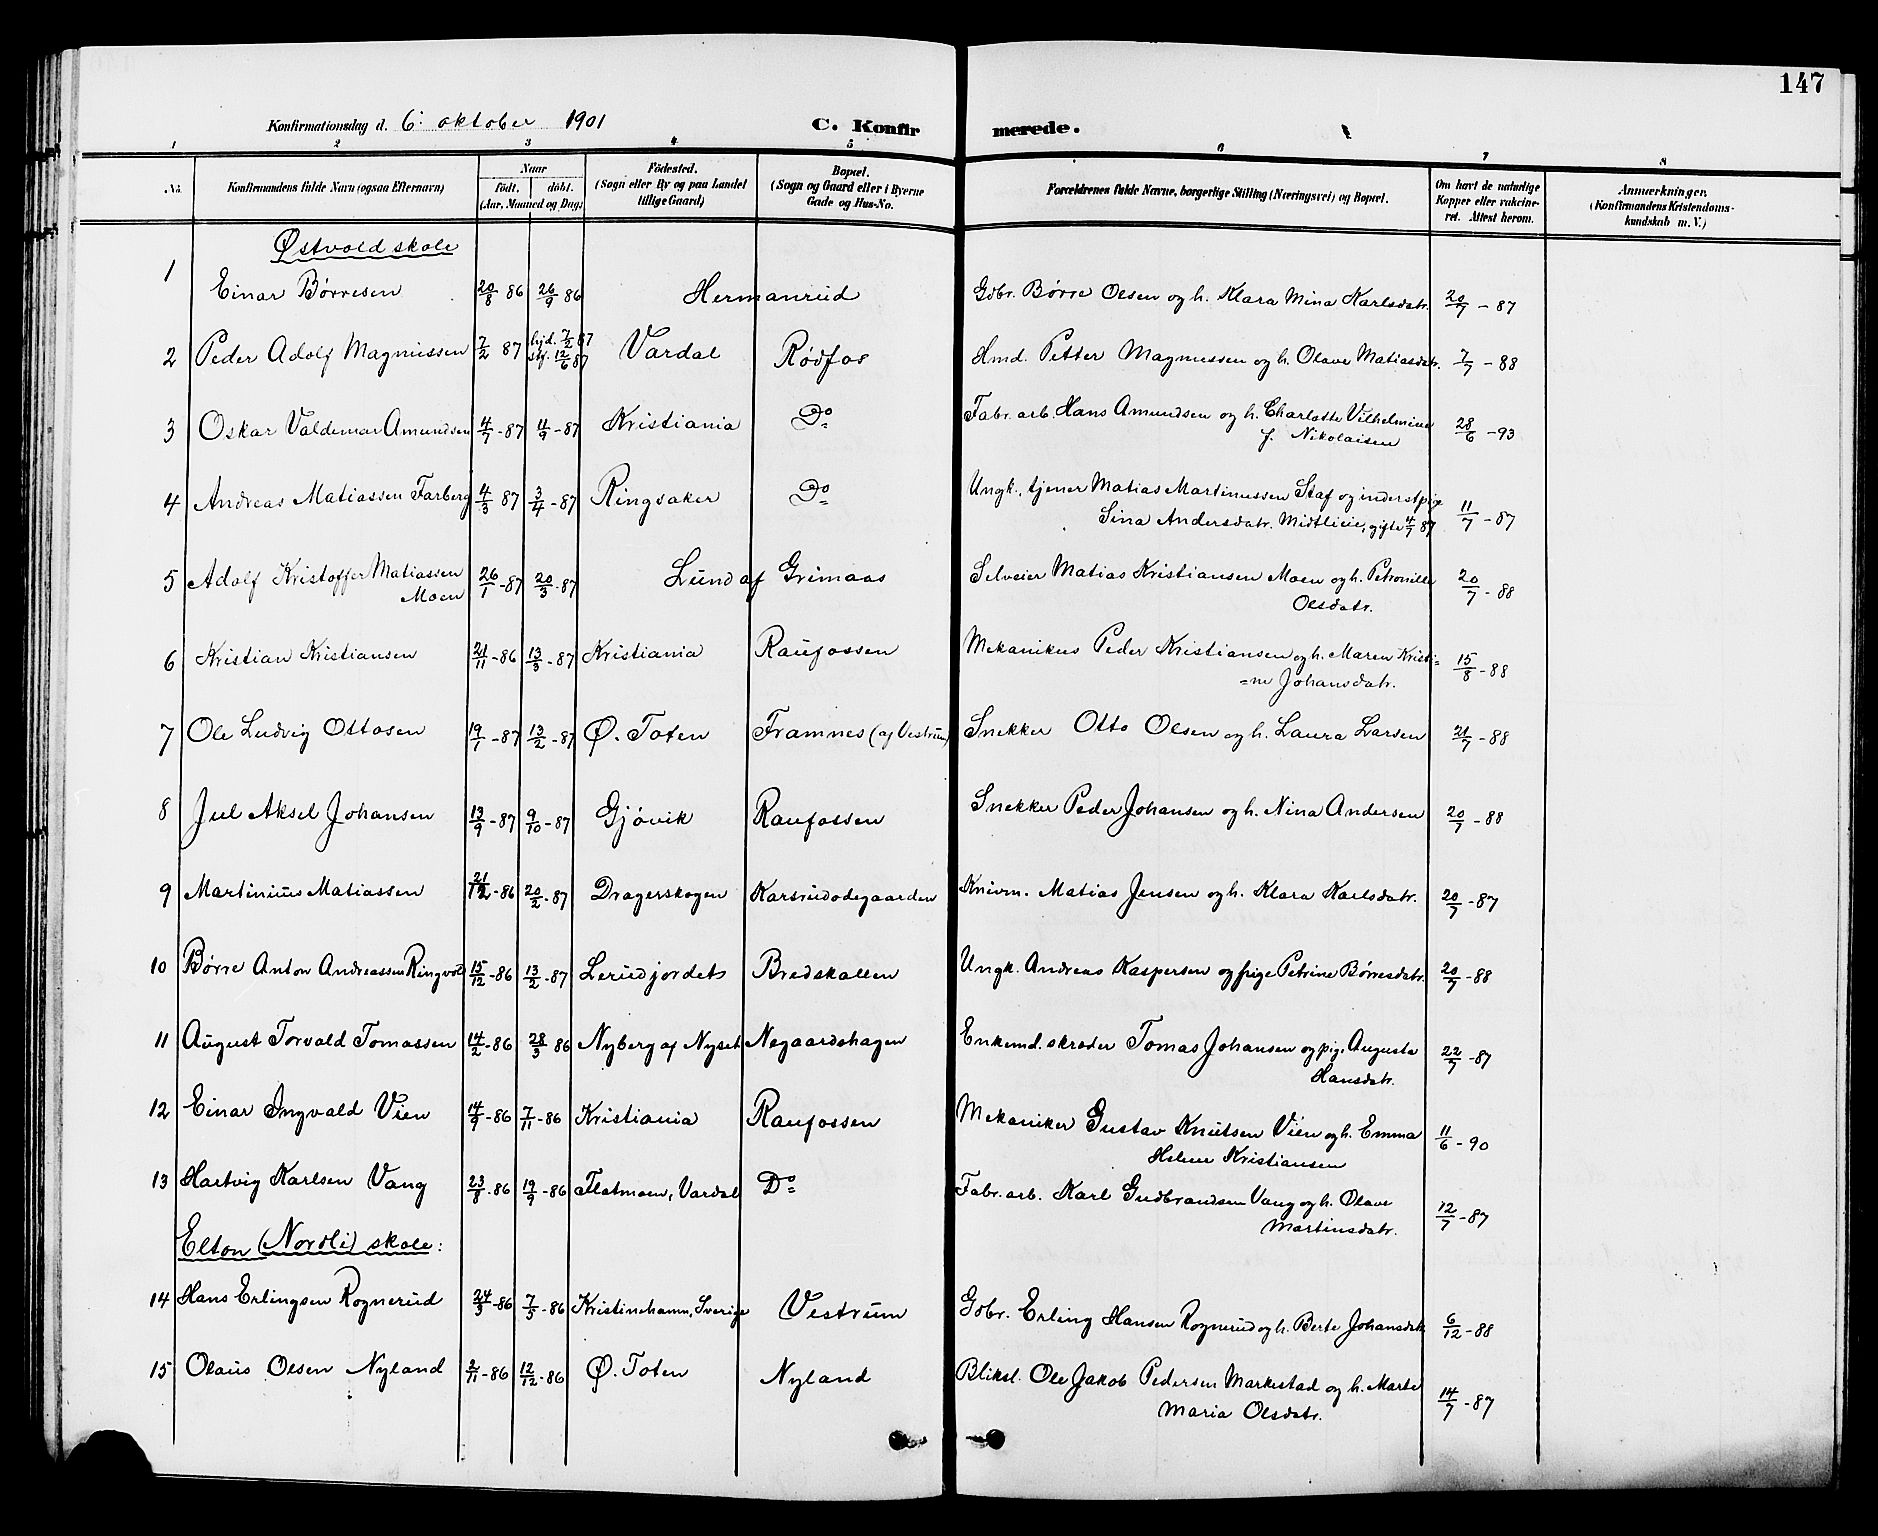 147
Konfirmationsdag d. 6. oktober 1901
C. Konfirmerede.
1 2 3 4 5 6 7 8
No. Konfirmandens fulde Navn (ogsaa Efternavn) Naar født, døbt. (Aar, Maaned og Dag) Fødested. (Sogn eller By og paa Landet tillige Gaard) Bopæl. (Sogn og Gaard eller i Byerne Gade og Hus-No. Forældrenes fulde Navne, borgerlige Stilling (Næringsvei) og Bopæl. Om havt de naturlige Kopper eller vakcineret. Attest herom. Anmærkninger. (Konfirmandens Kristendomskundskab m. V.)
Østvold skole
1 Einar Børresen 20/8 86 26/9 86 Hermanrud Gbr. Børre Olsen og h. Klara Mina Karlsdatr. 20/7 - 87
2 Peder Adolf Magnussen 7/2 87 hjd. 7/2 87 stf. 12/6 87 Vardal Rødfos Hmd. Petter Magnussen og h. Olave Matiasdatr. 7/7 - 88
3 Oskar Valdemar Amundsen 4/7 - 87 11/9 - 87 Kristiania Do Fabr. arb. Hans Amundsen og h. Charlotte Vilhelmine
f. Nikolaisen 28/6 - 93
4 Andreas Matiassen Farberg 4/3 87 3/4 - 87 Ringsaker Do Ungk., tjener Matias Martinussen Staf og inderstpige
Sina Andersdatr. Midtlieie, gifte 4/7 87 11/7 - 87
5 Adolf Kristoffer Matiassen
Moen 26/1 - 87 20/3 - 87 Lund af Grimaas Selveier Matias Kristiansen Moen og h. Petronille
Olsdatr. 20/7 - 88
6 Kristian Kristiansen 21/11 - 86 13/3 - 87 Kristiania Raufossen Mekanikus Peder Kristiansen og h. Maren Kristi=
=ne Johansdatr. 15/8 - 88
7 Ole Ludvig Ottosen 19/1 - 87 13/2 - 87 Ø. Toten Framnes (af Vestrum) Snekker Otto Olsen og h. Laura Larsen 21/7 - 88
8 Jul Aksel Johansen 13/9 - 87 9/10 - 87 Gjøvik Raufossen Snekker Peder Johansen og h. Nina Andersen 20/7 - 88
9 Martinius Matiassen 21/12 - 86 20/2 - 87 Dragerskogen Karsrudødegaarden Knivm. Matias Jensen og h. Klara Karlsdatr. 20/7 - 87
10 Børre Anton Andreassen Ringvold 15/12 - 86 13/2 - 87 Lerudjordets Bredskallen Ungk. Andreas Kaspersen og pige Petrine Børresdatr. 20/7 - 88
11 August Torvald Tomassen 14/2 - 86 28/3 86 Nyberg af Nyset Nøgaardshagen Enkemd. skræder Tomas Johansen og pig. Augusta
Hansdatr. 22/7 - 87
12 Einar Ingvald Vien 14/9 - 86 7/11 - 86 Kristiania Raufossen Mekaniker Gustav Knutsen Vien og h. Emma
Helene Kristiansen 11/6 - 90
13 Hartvig Karlsen Vang 23/8 - 86 19/9 - 86 Flatmoen, Vardal Do Fabr. arb. Karl Gudbrandsen Vang og h. Olave
Martinsdatr. 12/7 - 87
Elton (Nordli) skole:
14 Hans Erlingsen Rognerud 24/3 - 86 7/5 - 86 Kristinehamn, Sverige Vestrum Gbr. Erling Hansen Rognerud og h. Berte Johansdatr. 6/12 - 88
15 Olaus Olsen Nyland 2/11 - 86 12/12 - 86 Ø. Toten Nyland Bliksl. Ole Jakob Pedersen Markestad og h. Marte
Maria Olsdatr. 14/7 - 87